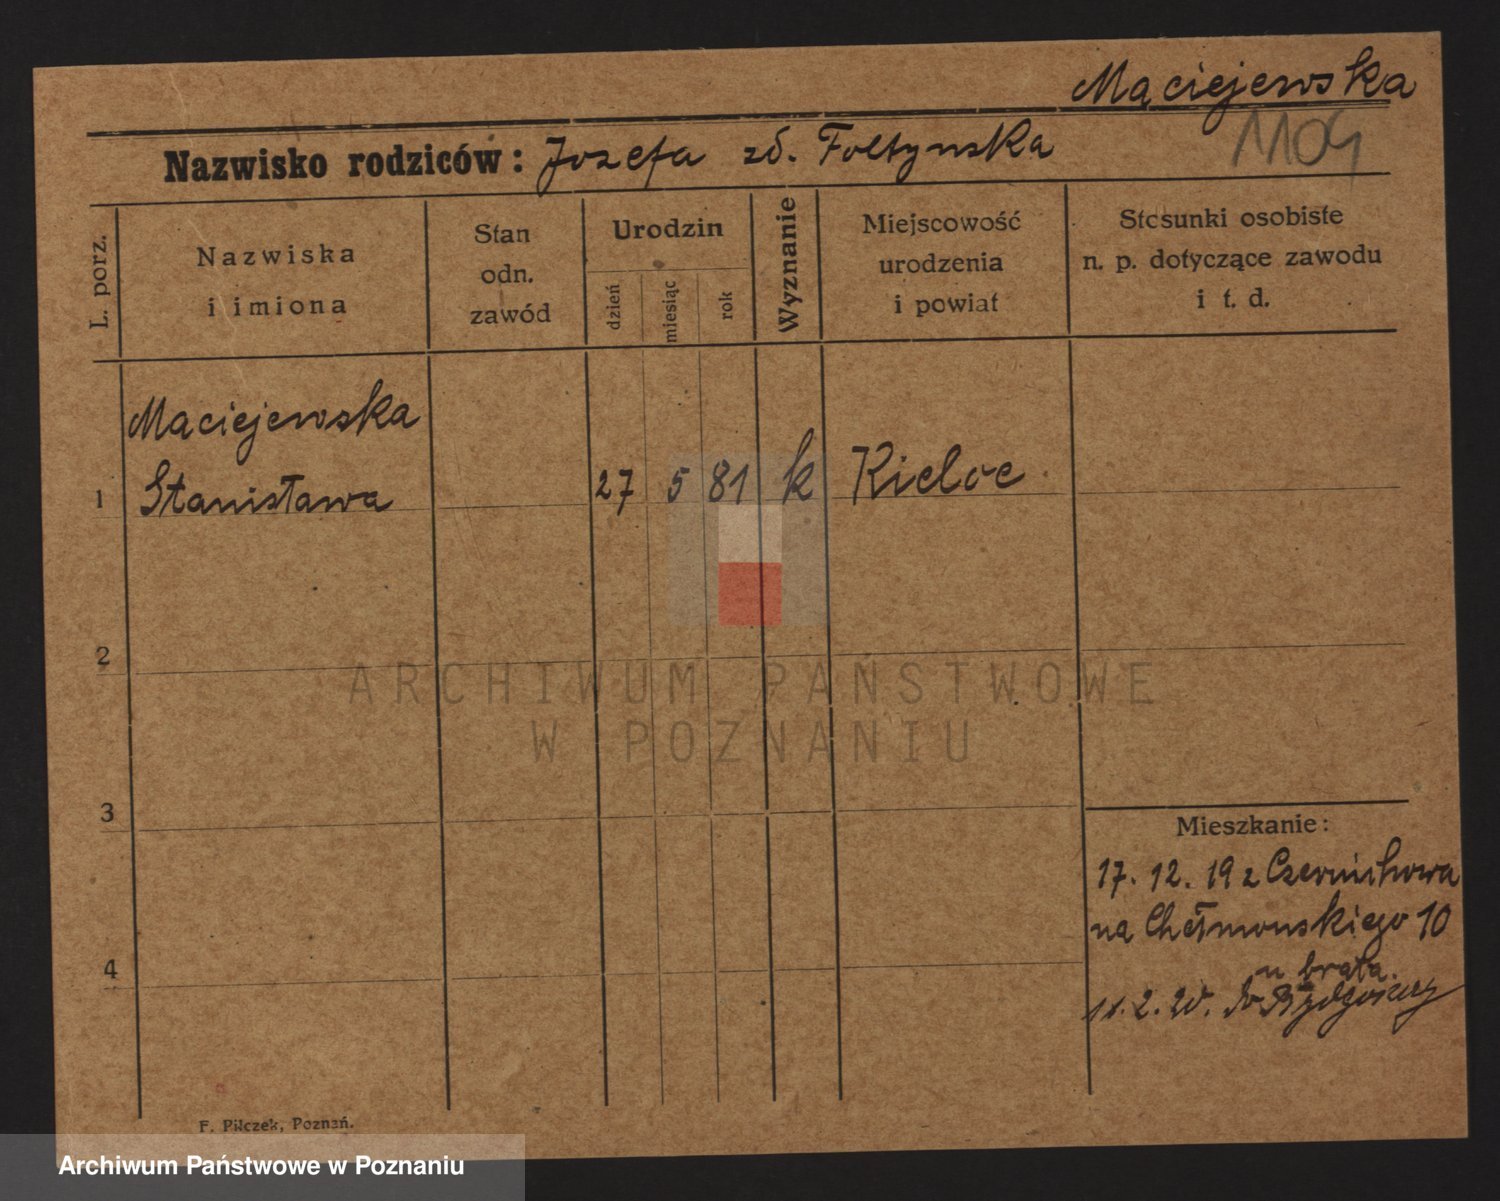 Maciejewska
1104
Nazwisko rodziców: Jozefa zd. Foltynska
L. porz.
Nazwiska
i imiona
Stan
odn.
zawód
Urodzin
dzień
miesiąc
rok
Wyznanie
Miejscowość
urodzenia
i powiat
Stosunki osobiste
n. p. dotyczące zawodu
i t. d.
Maciejewska
1 Stanisława 27 5 81 k Kielce
2
3
4
Mieszkanie:
17. 12. 19 z
na Chełmonskiego 10
u brata
11. 2. 20. do Bydgoszczy
F. Pilczek, Poznań.
ARCHIWUM PAŃSTWOWE
W POZNANIU
Archiwum Państwowe w Poznaniu